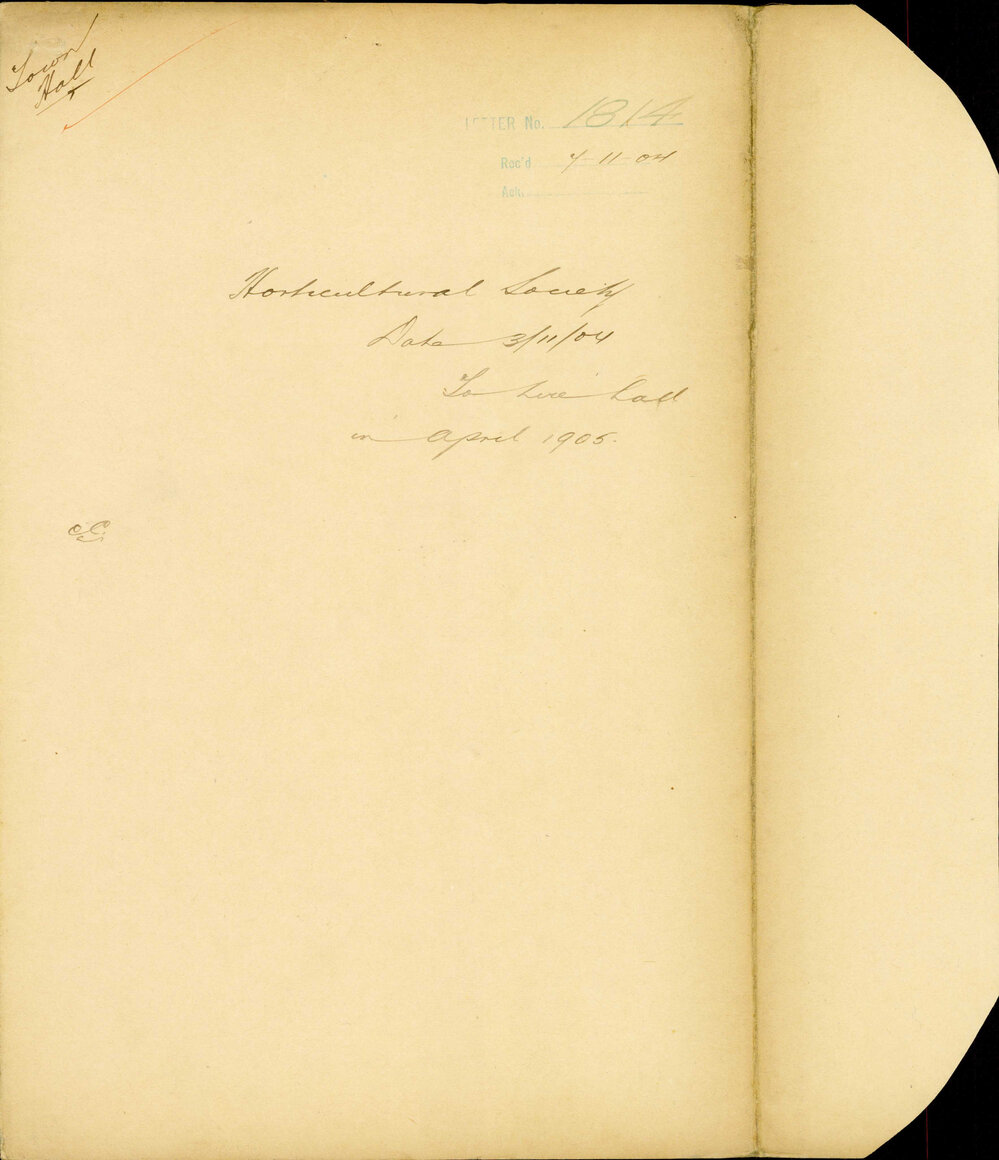 Town
Hall
LETTER No. 1814
Rec'd 7-11-04
Ack.
Horticultural Society
Date 3/11/04
To hire hall
in April 1905.